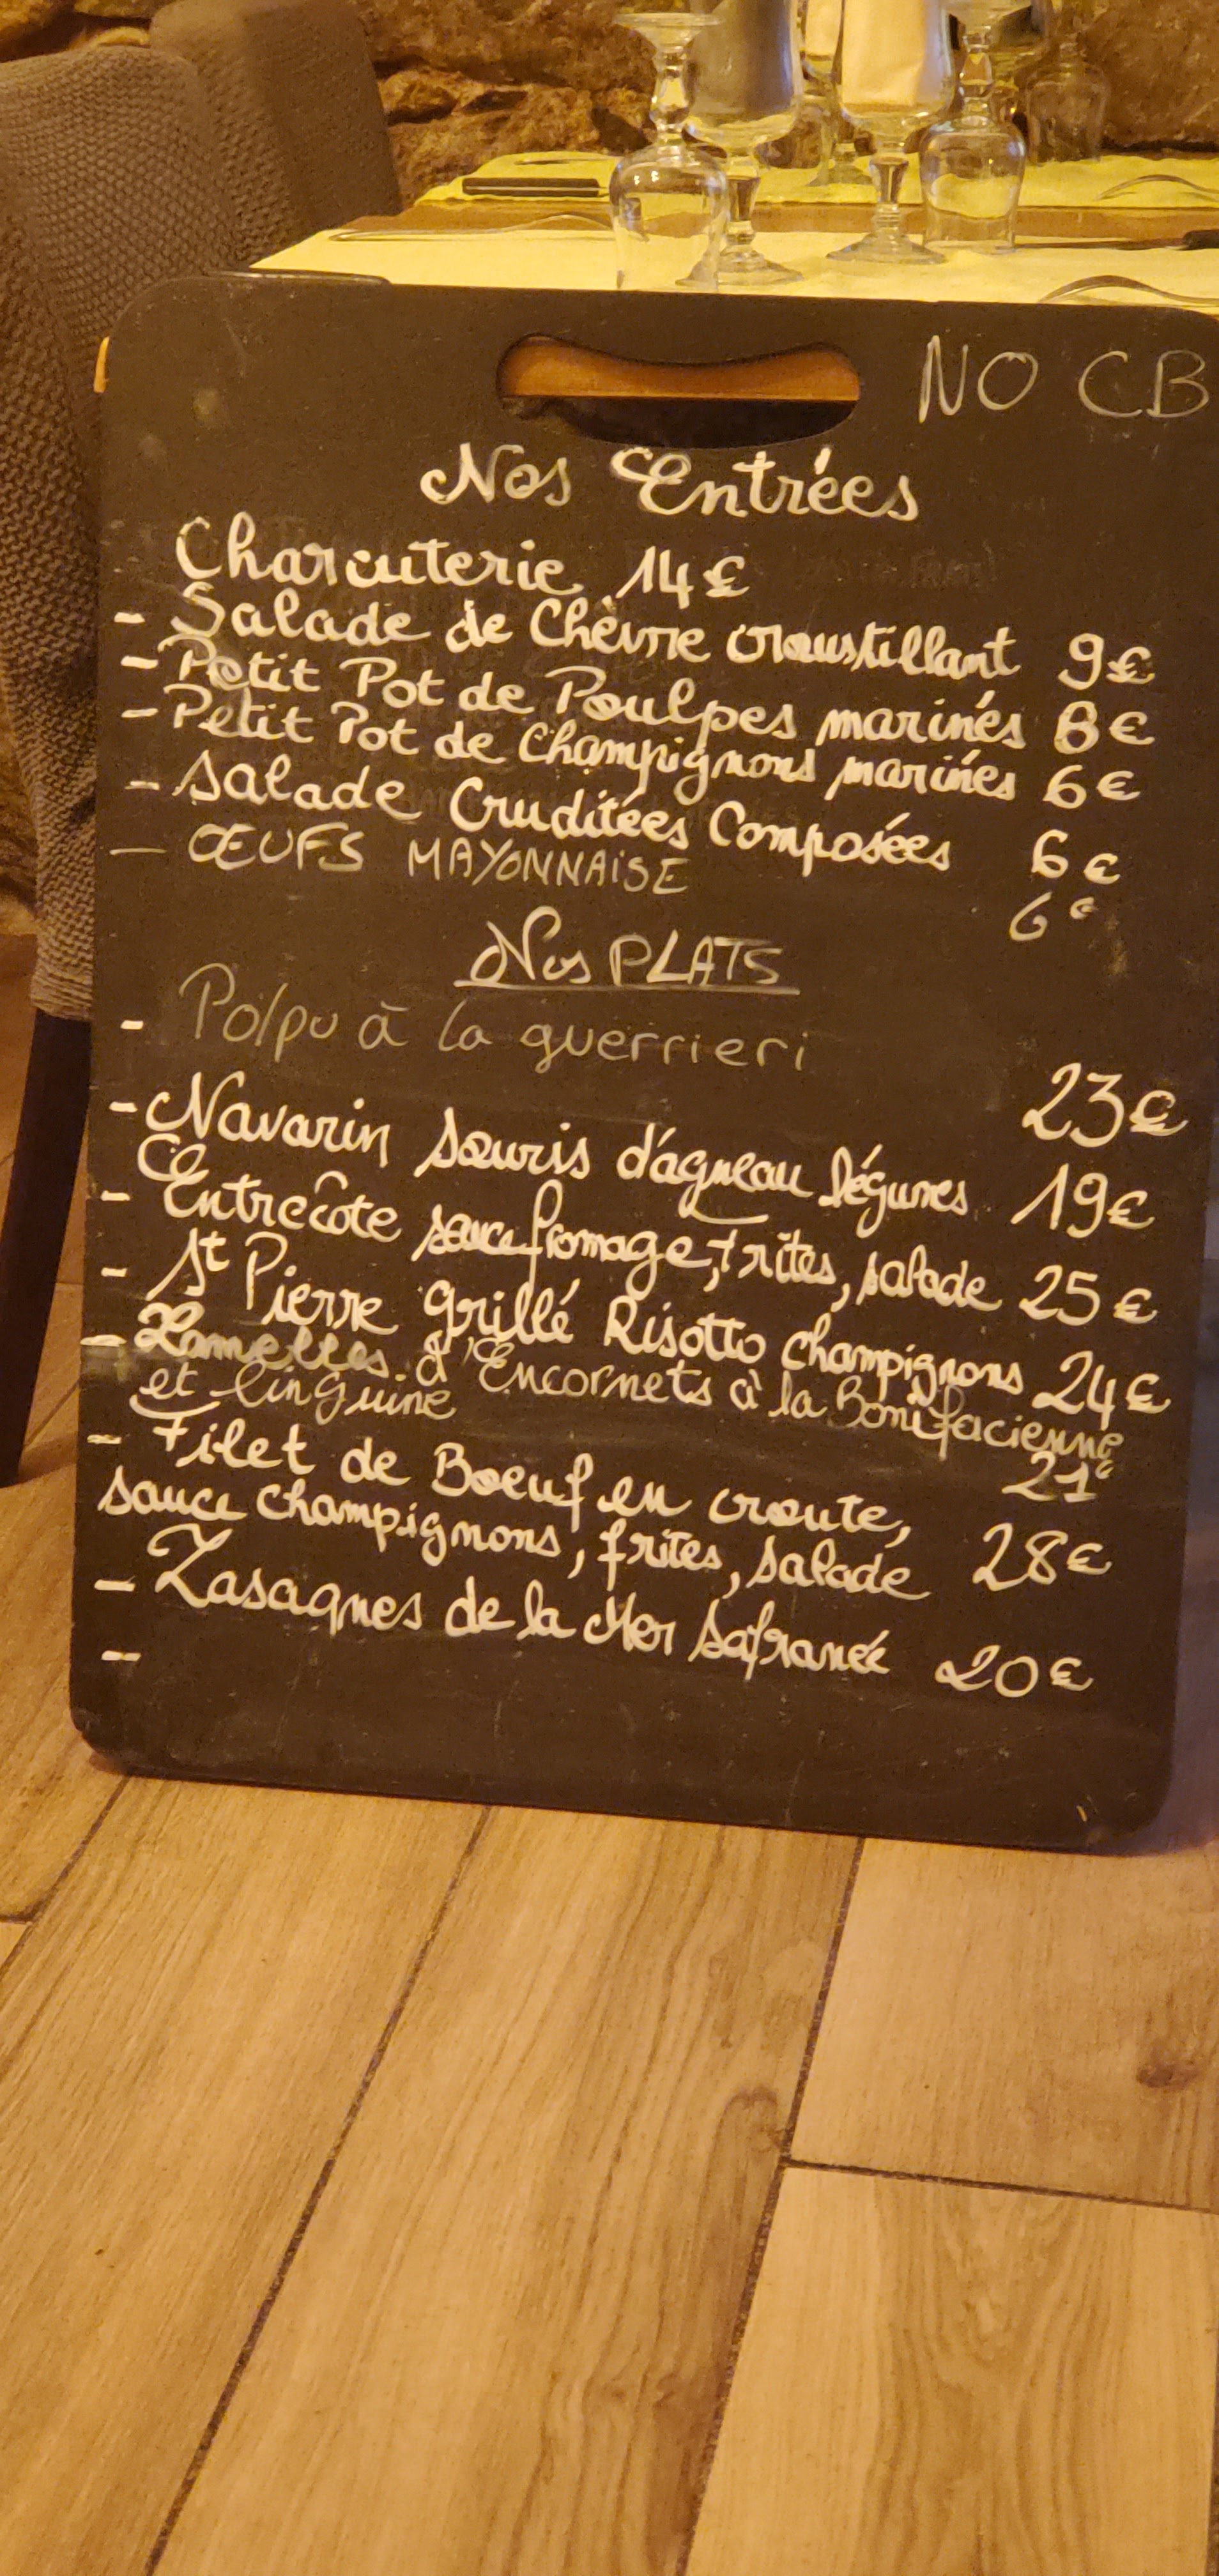 NO CB
Nos Entrées
Charcuterie 14€
- Salade de Chèvre croustillant 9€
- Petit Pot de Poulpes marinés 8€
- Petit Pot de Champignons marinés 6€
- Salade Cruditées Composées 6€
- ŒUFS MAYONNAISE 6€
Nos PLATS
- Polpu à la guerrieri 23€
- Navarin souris d'agneau légumes 19€
- Entrecôte sauce fromage, frites, salade 25€
- St Pierre grillé Risotto champignons 24€
- Lamelles d'Encornets à la Bonifacienne
et linguine 21€
- Filet de Boeuf en croute,
sauce champignons, frites, salade 28€
- Lasagnes de la Mer Safranée 20€
-